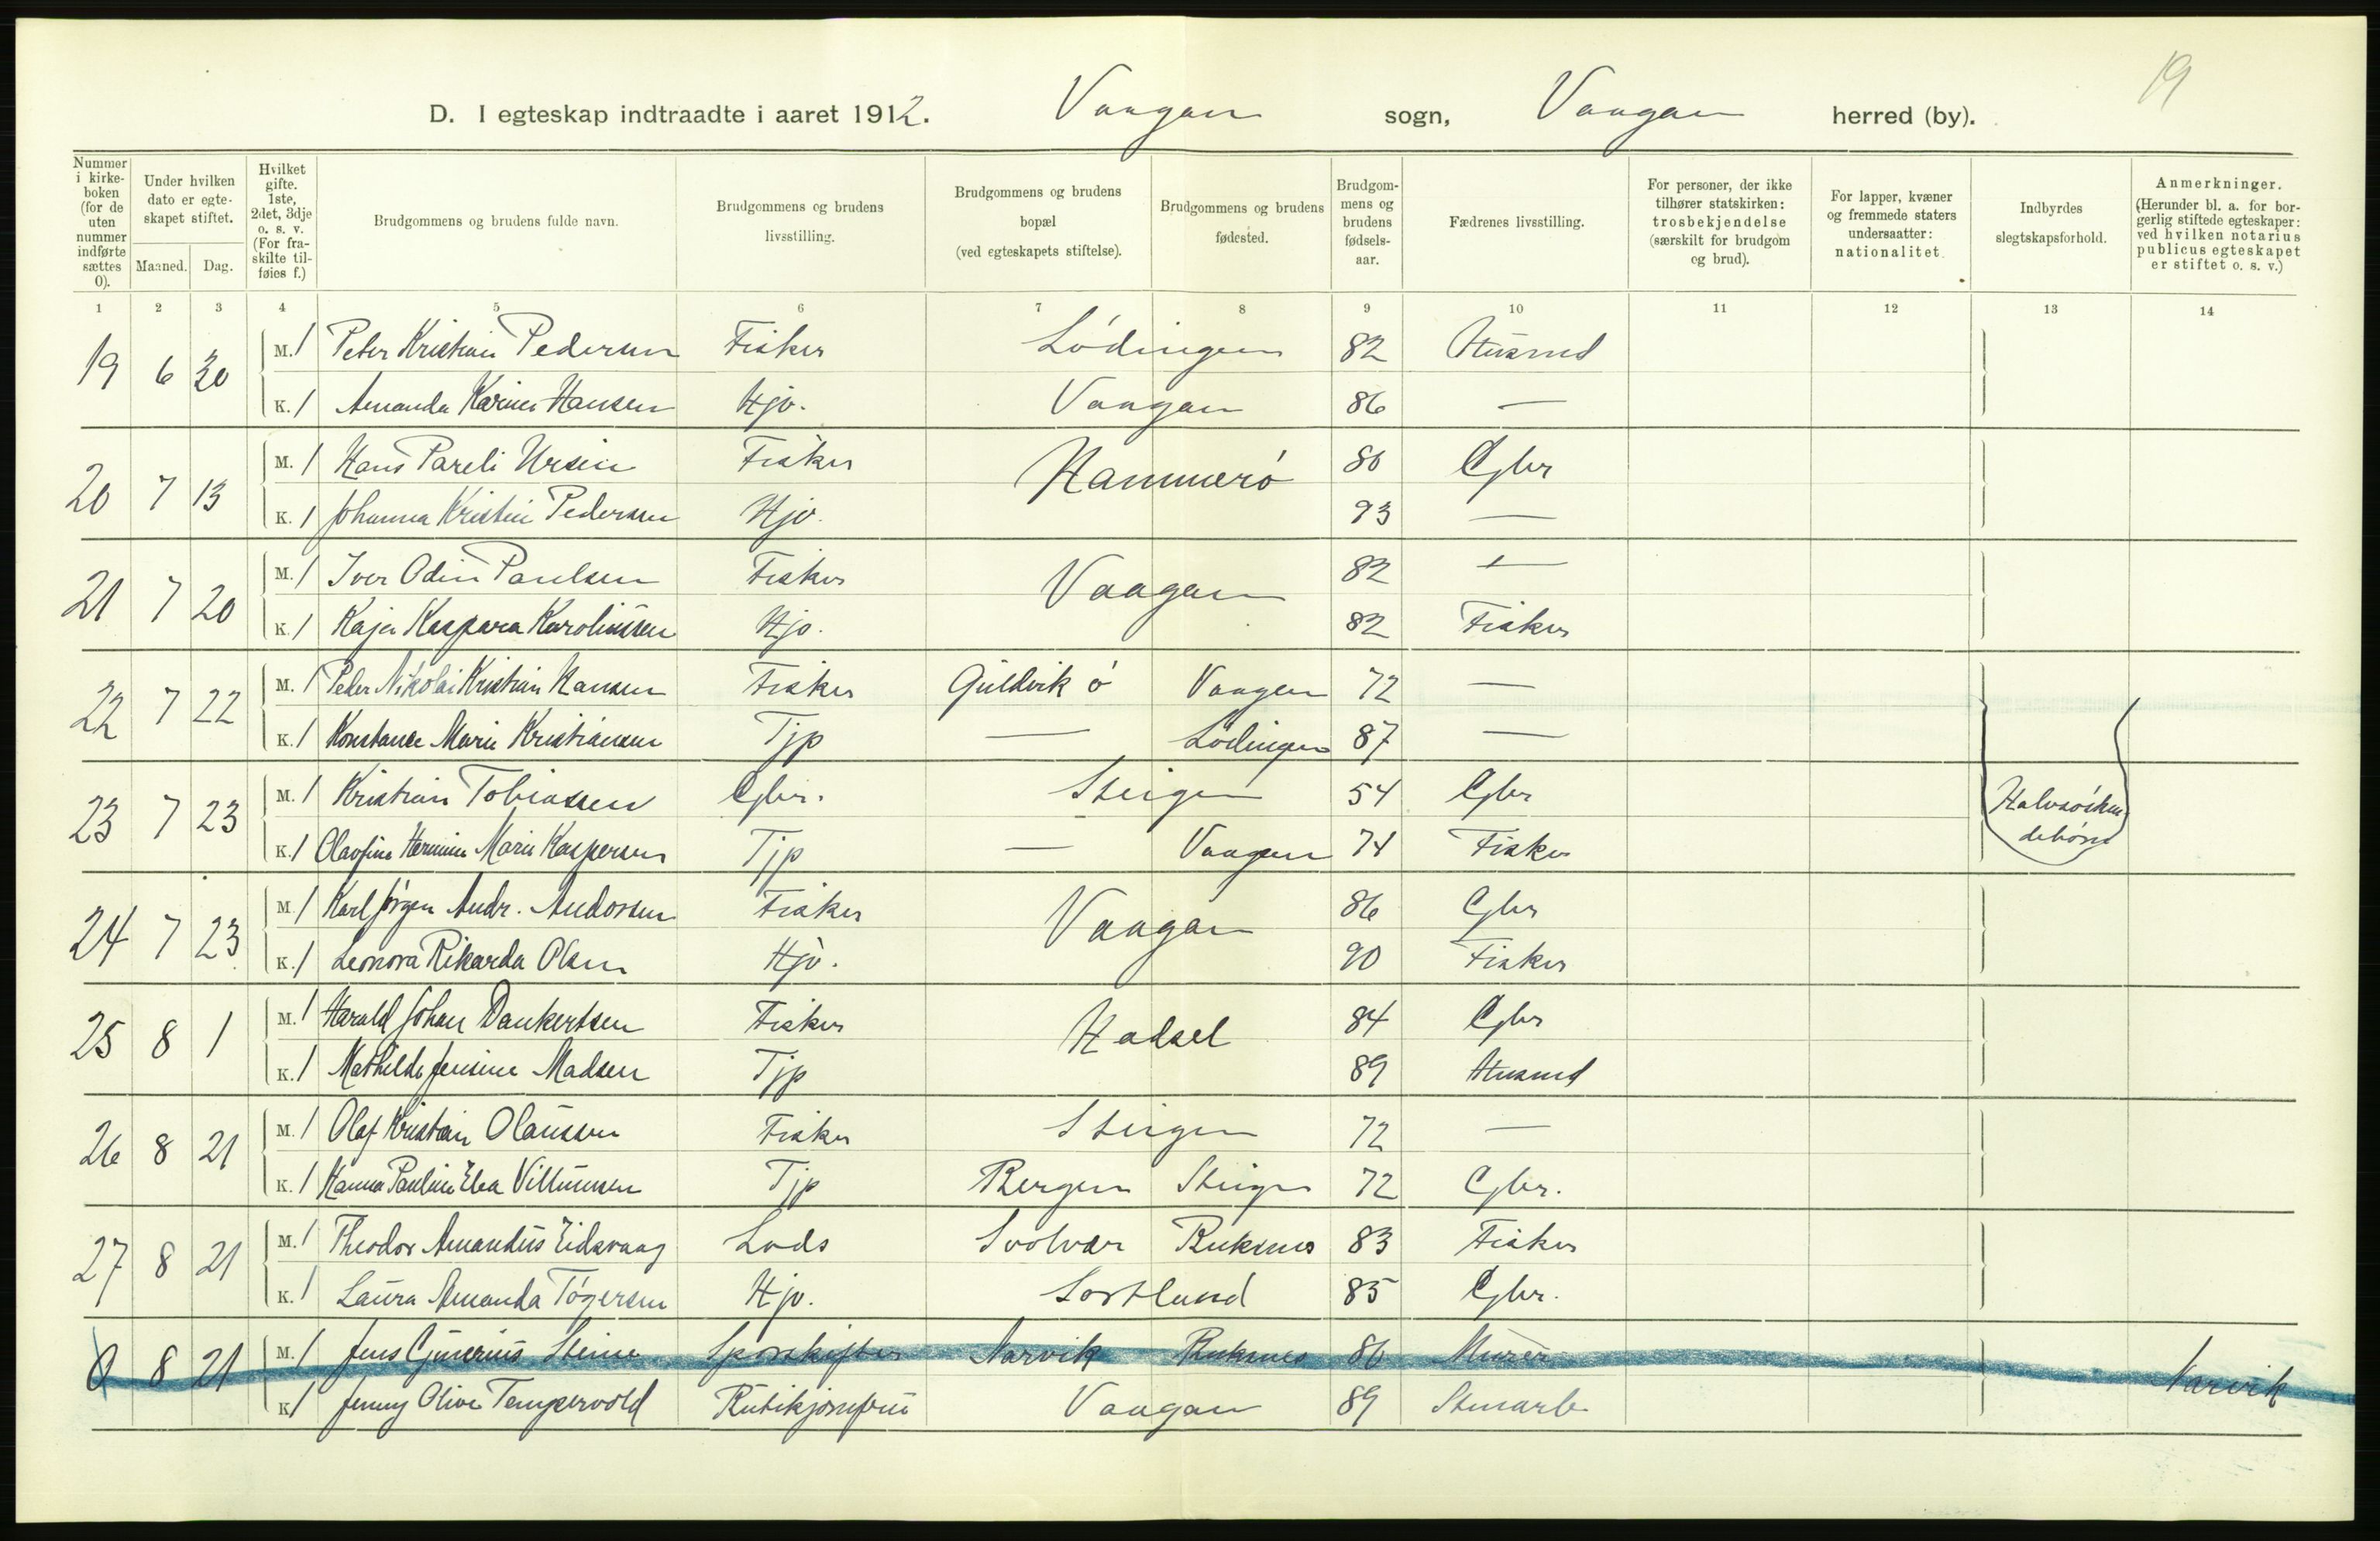 19
D. I egteskap indtraadte i aaret 1912. Vaagan sogn, Vaagan herred (by).
Nummer i kirke-boken (for de uten nummer indførte sættes 0).
Under hvilken dato er egte-skapet stiftet.
Maaned. Dag.
Hvilket gifte. 1ste, 2det, 3dje o. s. v. (For fra-skilte til-føies f.)
Brudgommens og brudens fulde navn.
Brudgommens og brudens livsstilling.
Brudgommens og brudens bopæl (ved egteskapets stiftelse).
Brudgommens og brudens fødested.
Brudgom-mens og brudens fødsels-aar.
Fædrenes livsstilling.
For personer, der ikke tilhører statskirken: trosbekjendelse (særskilt for brudgom og brud).
For lapper, kvæner og fremmede staters undersaatter: nationalitet.
Indbyrdes slegtskapsforhold.
Anmerkninger. (Herunder bl. a. for bor-gerlig stiftede egteskaper: ved hvilken notarius publicus egteskapet er stiftet o. s. v.)
1 2 3 4 5 6 7 8 9 10 11 12 13 14
19 6 30 M. 1 Peter Kristian Pedersen Fisker Lödingen 82 Husmd
K. 1 Amanda Karine Hansen Hjv. Vaagan 86 —
20 7 13 M. 1 Hans Pareli Ursin Fisker Hammerö 86 Gbr
K. 1 Johanna Kristin Pedersen Hjv. 93 —
21 7 20 M. 1 Iver Odin Paulsen Fisker Vaagan 82 —
K. 1 Kaja Kaspara Karolinssen Hjv. 82 Fisker
22 7 22 M. 1 Peder Nikolai Kristian Hansen Fisker Guldvik ö Vaagan 72 —
K. 1 Konstanse Marie Kristiansen Tjp — Lödingen 87 —
23 7 23 M. 1 Kristian Tobiassen Gbr. Steigen 54 Gbr
K. 1 Olavfine Hermine Marie Kaspersen Tjp — Vaagan 74 Fisker Halvsösken-debörn
24 7 23 M. 1 Karl Jörgen Andr. Andorsen Fisker Vaagan 86 Gbr
K. 1 Leonora Rikarda Olsen Hjv. 90 Fisker
25 8 1 M. 1 Harald Johan Dankertsen Fisker Hadsel 84 Gbr
K. 1 Mathilde Jensine Madsen Tjp 89 Husmd
26 8 21 M. 1 Olaf Kristian Olaussen Fisker Steigen 72 —
K. 1 Hanna Pauline Elea Villumsen Tjp Bergen Steigen 72 Gbr.
27 8 21 M. 1 Theodor Amandus Eidsvaag Lods Svolvær Buksnes 83 Fisker
K. 1 Laura Amanda Tögersen Hjv. Sortland 85 Gbr.
0 8 21 M. 1 Jens Gunerius Steine Sporskifter Narvik Buksnes 86 Murer Narvik
K. 1 Jenny Olive Tengervold Butikjomfru Vaagan 89 Stenarb